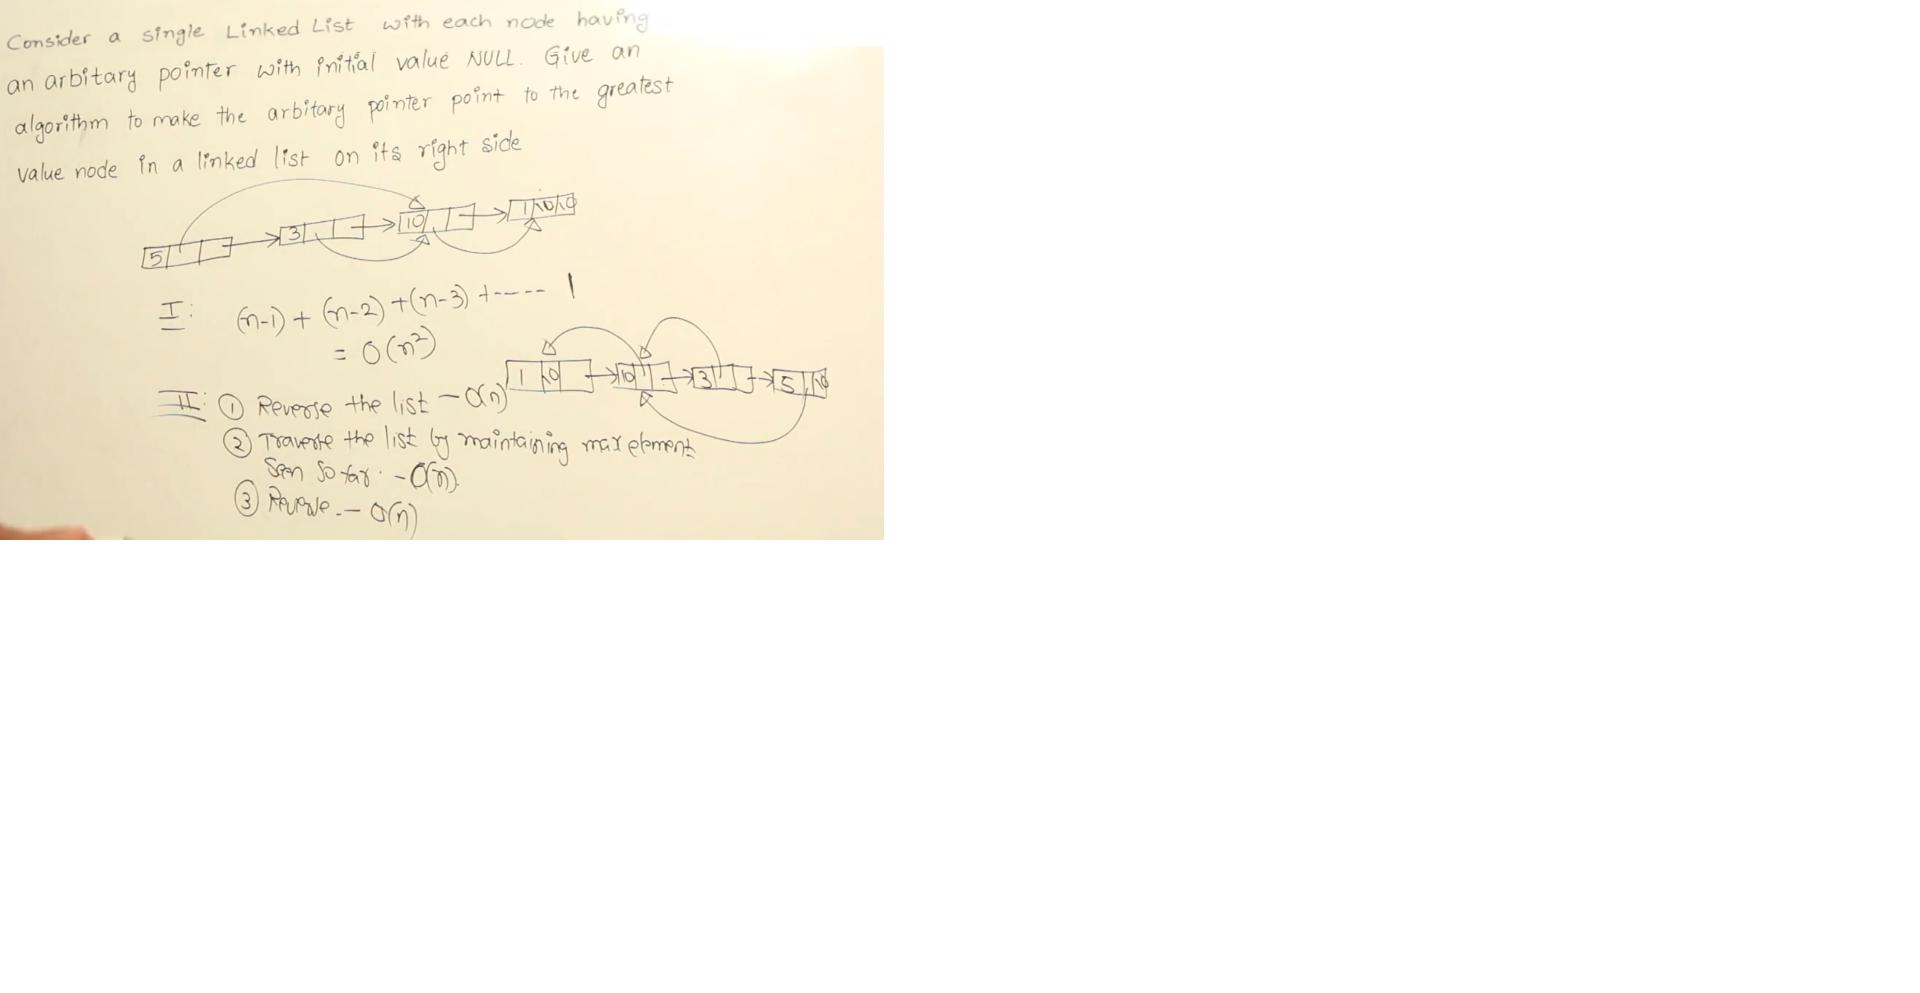 Consider a single Linked List with each node having
an arbitary pointer with initial value NULL. Give an
algorithm to make the arbitary pointer point to the greatest
value node in a linked list on its right side
5 3 10 1 \0 \0
I: (n-1) + (n-2) + (n-3) + ---- 1
= O(n²)
1 \0 10 3 5 \0
II: ① Reverse the list - O(n)
② Traverse the list by maintaining max element
Seen So far. - O(n)
③ Reverse. - O(n)